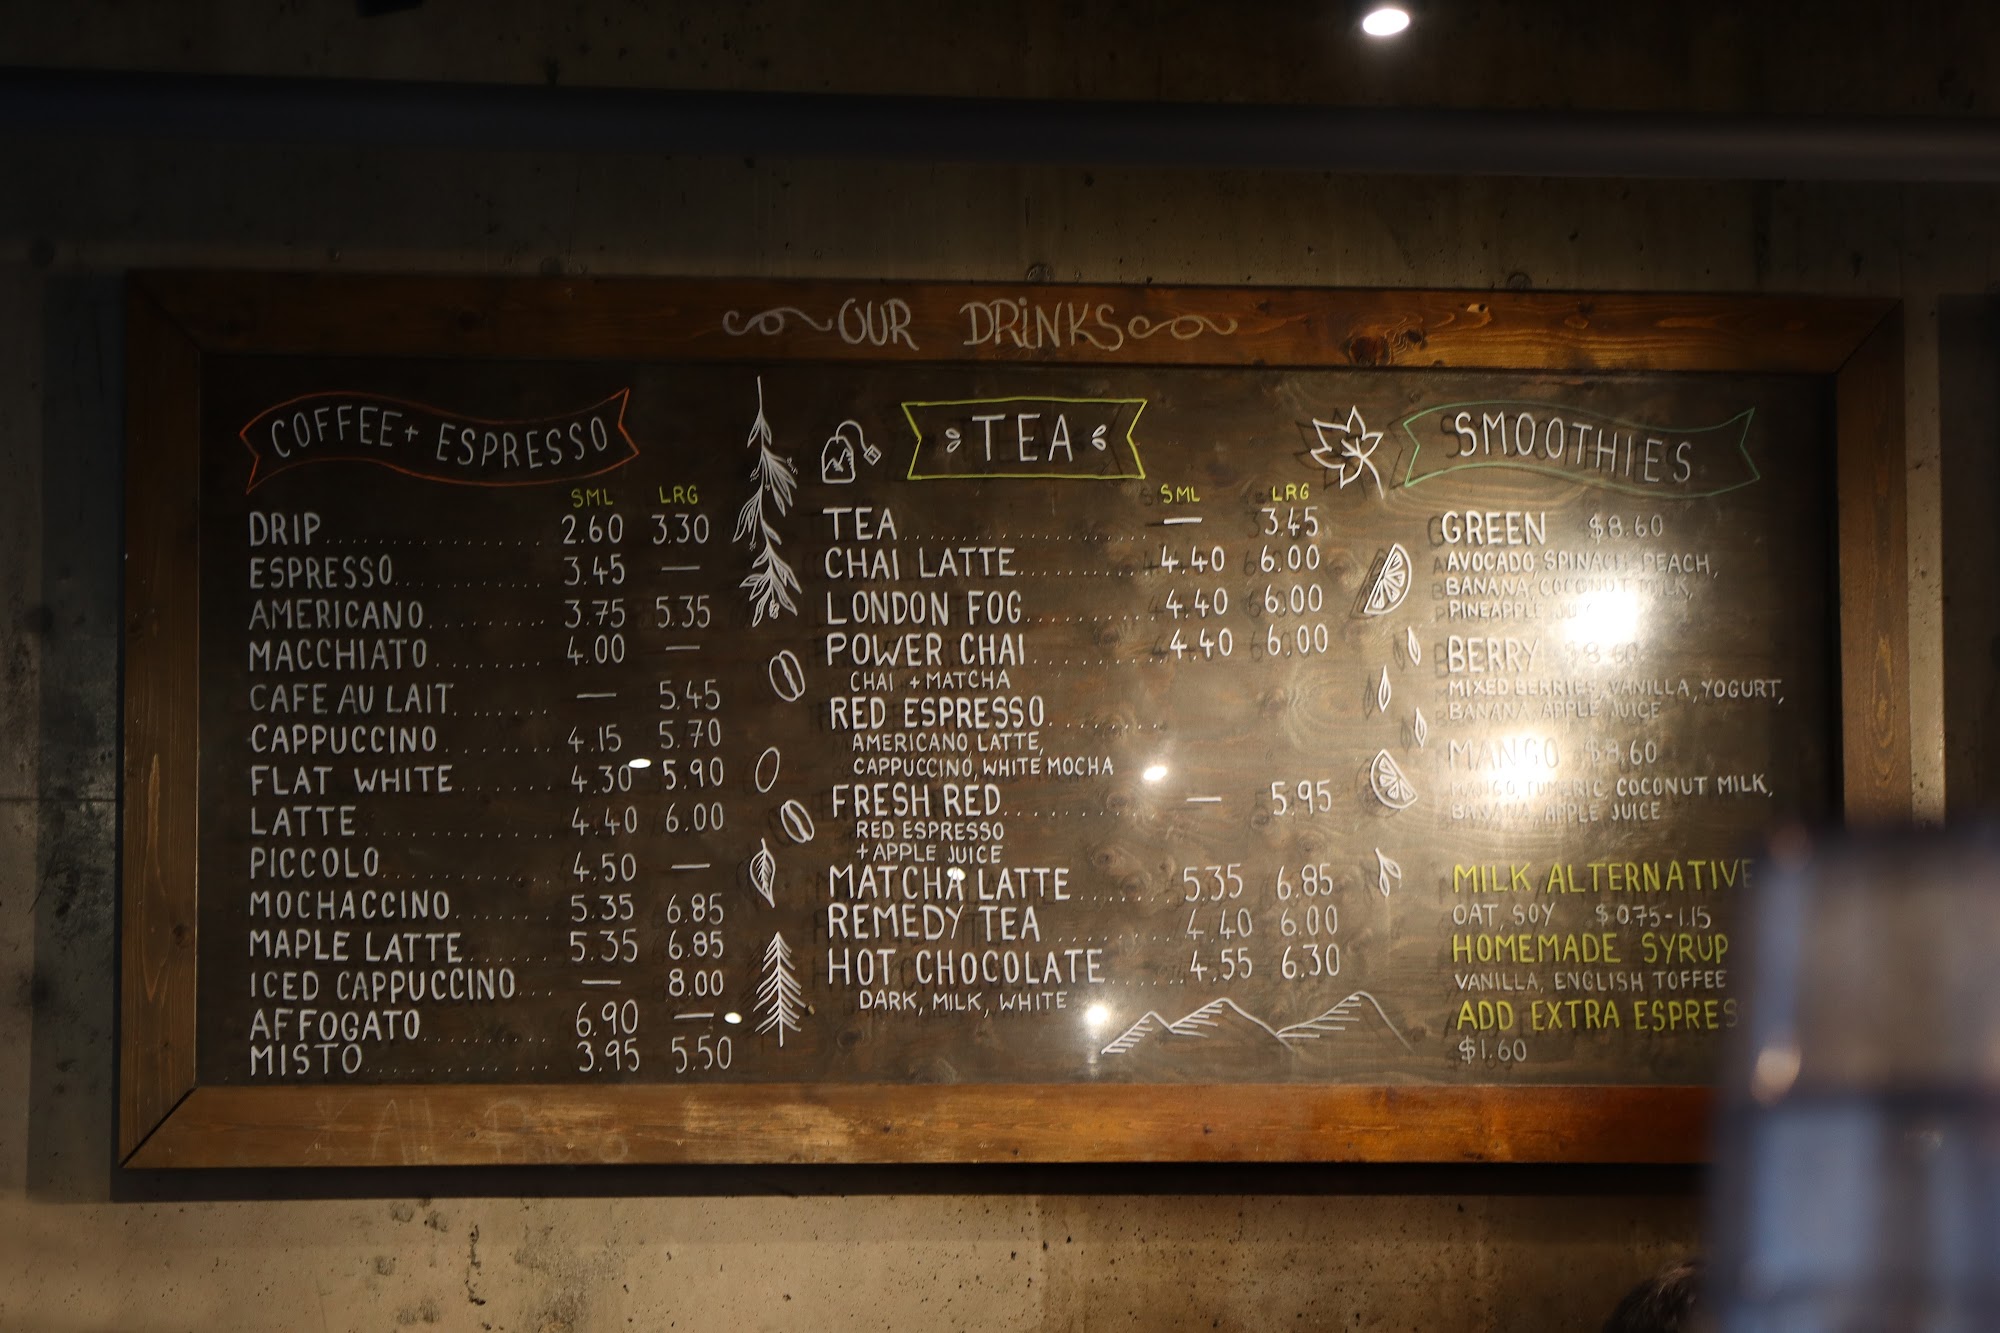 OUR DRINKS
COFFEE + ESPRESSO
SML LRG
DRIP 2.60 3.30
ESPRESSO 3.45 —
AMERICANO 3.75 5.35
MACCHIATO 4.00 —
CAFE AU LAIT — 5.45
CAPPUCCINO 4.15 5.70
FLAT WHITE 4.30 5.90
LATTE 4.40 6.00
PICCOLO 4.50 —
MOCHACCINO 5.35 6.85
MAPLE LATTE 5.35 6.85
ICED CAPPUCCINO — 8.00
AFFOGATO 6.90 —
MISTO 3.95 5.50
TEA
SML LRG
TEA — 3.45
CHAI LATTE 4.40 6.00
LONDON FOG 4.40 6.00
POWER CHAI 4.40 6.00
CHAI + MATCHA
RED ESPRESSO
AMERICANO, LATTE,
CAPPUCCINO, WHITE MOCHA
FRESH RED — 5.95
RED ESPRESSO
+ APPLE JUICE
MATCHA LATTE 5.35 6.85
REMEDY TEA 4.40 6.00
HOT CHOCOLATE 4.55 6.30
DARK, MILK, WHITE
SMOOTHIES
GREEN $8.60
AVOCADO, SPINACH, PEACH,
BANANA, COCONUT MILK,
PINEAPPLE
BERRY
MIXED BERRIES, VANILLA, YOGURT,
BANANA, APPLE JUICE
MANGO $8.60
MANGO, TUMERIC, COCONUT MILK,
BANANA, APPLE JUICE
MILK ALTERNATIVE
OAT, SOY $0.75-1.15
HOMEMADE SYRUP
VANILLA, ENGLISH TOFFEE
ADD EXTRA ESPRES
$1.60